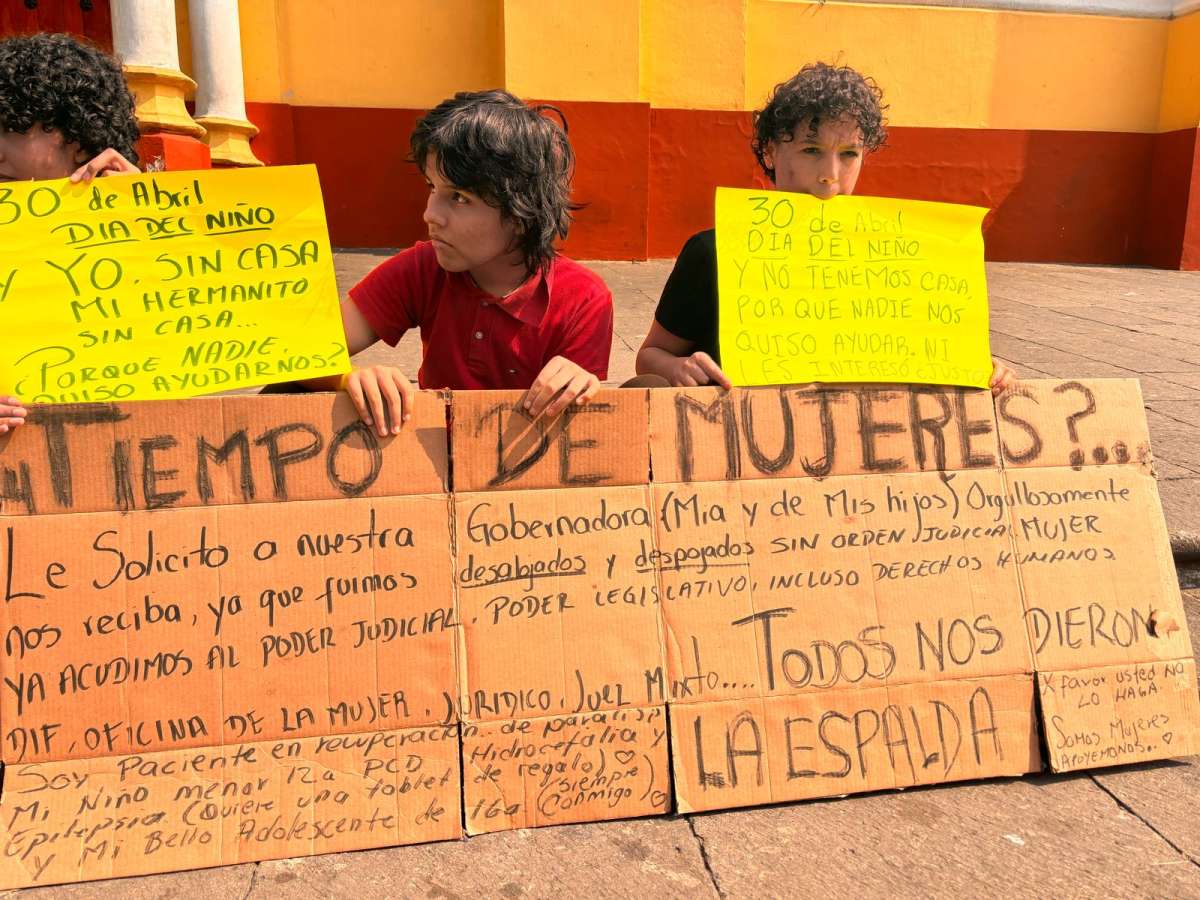 30 de Abril
DIA DEL NIÑO
Y YO, SIN CASA
MI HERMANITO
SIN CASA...
¿PORQUE NADIE,
QUISO AYUDARNOS?
30 de Abril
DIA DEL NIÑO
Y NO TENEMOS CASA,
PORQUE NADIE NOS
QUISO AYUDAR. NI
LES INTERESÓ
TIEMPO DE MUJERES?...
Le Solicito a nuestra Gobernadora (Mia y de Mis hijos) Orgullosamente MUJER
nos reciba, ya que fuimos desalojados y despojados SIN ORDEN JUDICIAL
YA ACUDIMOS AL PODER JUDICIAL, PODER LEGISLATIVO, INCLUSO DERECHOS HUMANOS
DIF, OFICINA DE LA MUJER, JURIDICO, Juez Mixto.... TODOS NOS DIERON
LA ESPALDA
Soy Paciente en recuperación.. de paralisis
Mi Niño menor 12a PCD Hidrocefalia y
Epilepsia (Quiere una tablet de regalo) ♡
y Mi Bello Adolescente de 16a (siempre conmigo) ♡
X favor usted NO
LO HAGA.
Somos Mujeres
APOYEMONOS.. ♡